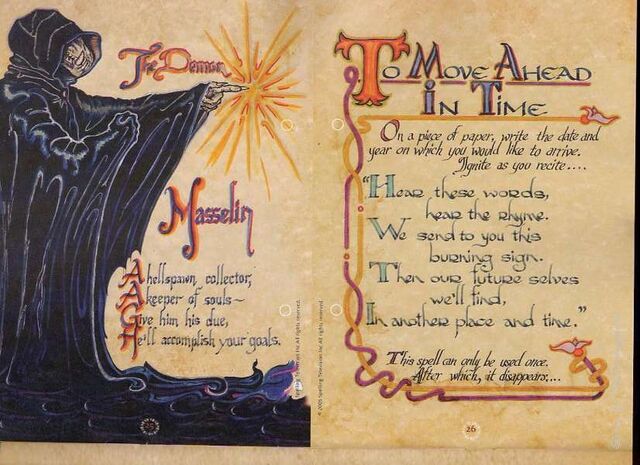 The Demon
Masselin
A hellspawn collector,
A keeper of souls~
Give him his due,
He'll accomplish your goals.
25
To Move Ahead
In Time
On a piece of paper, write the date and
year on which you would like to arrive.
Ignite as you recite....
"Hear these words,
hear the rhyme.
We send to you this
burning sign.
Then our future selves
we'll find,
In another place and time."
This spell can only be used once.
After which, it disappears....
© 2005 Spelling Television Inc. All rights reserved.
26